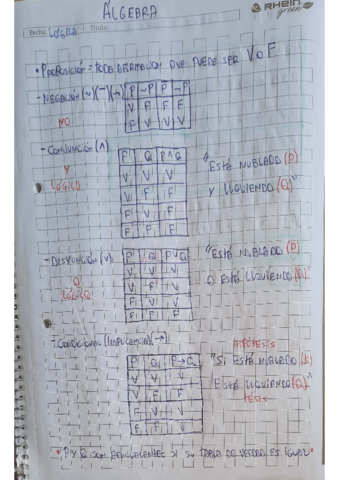 ALGEBRA
RHEIN
green
Fecha: LOGICA Título:
• PROPOSICIÓN - TODA AFIRMACION QUE PUEDE SER V o F
- NEGACIÓN (~)(-)(¬) P ~P P ¬P
NO V F F F
F V V V
- CONJUNCIÓN (∧) P Q P∧Q
Y V V V
LÓGICO V F F
F V F
F F F
"ESTÁ NUBLADO (P)
Y LLOVIENDO (Q)"
- DISYUNCIÓN (V) P Q P∨Q
O V V V
LÓGICO V F V
F V V
F F F
"ESTÁ NUBLADO (P)
O ESTÁ LLOVIENDO (Q)"
- CONDICIONAL (IMPLICANCIA) (→)
P Q P→Q
V V V
V F F
F V V
F F V
HIPÓTESIS
"SI ESTÁ NUBLADO (P)
ESTÁ LLOVIENDO (Q)"
TESIS
• P y Q SON EQUIVALENTES SI SU TABLA DE VERDAD ES IGUAL •